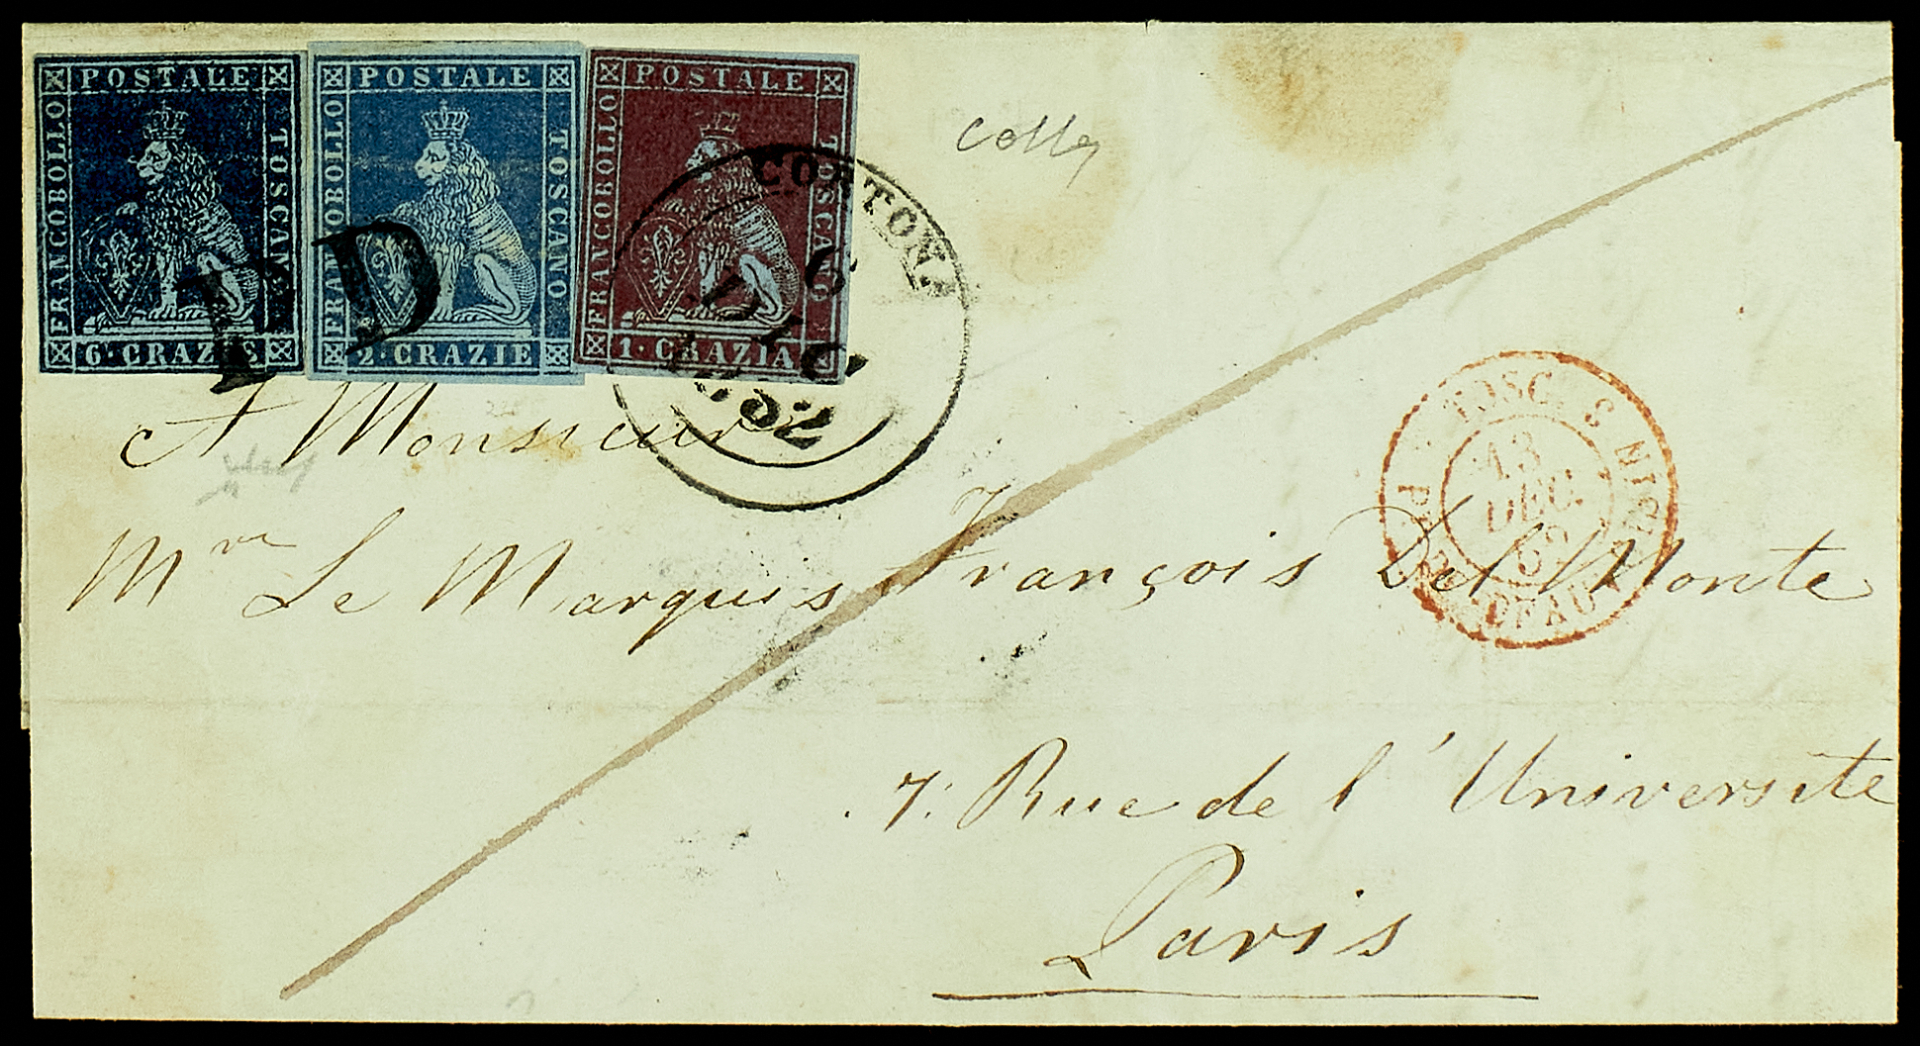 POSTALE
FRANCOBOLLO
TOSCANO
6· CRAZIE
POSTALE
FRANCOBOLLO
TOSCANO
2· CRAZIE
POSTALE
FRANCOBOLLO
TOSCANO
1· CRAZIA
PD
CORTONA
6
DIC
1852
TOSC.
13
DEC.
52
A Monsieur
Mr Le Marquis François Del Monte
7: Rue de l'Université
Paris